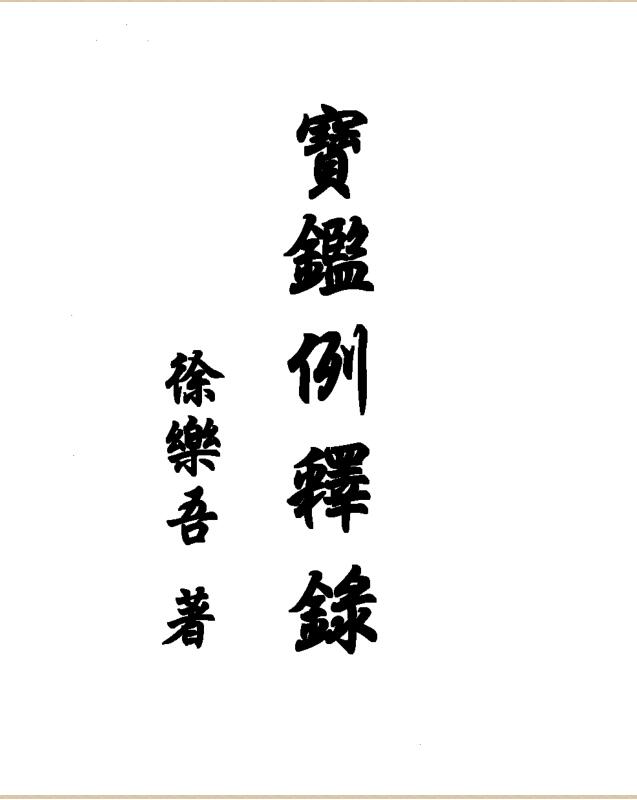 寶鑑例釋錄
徐樂吾 著